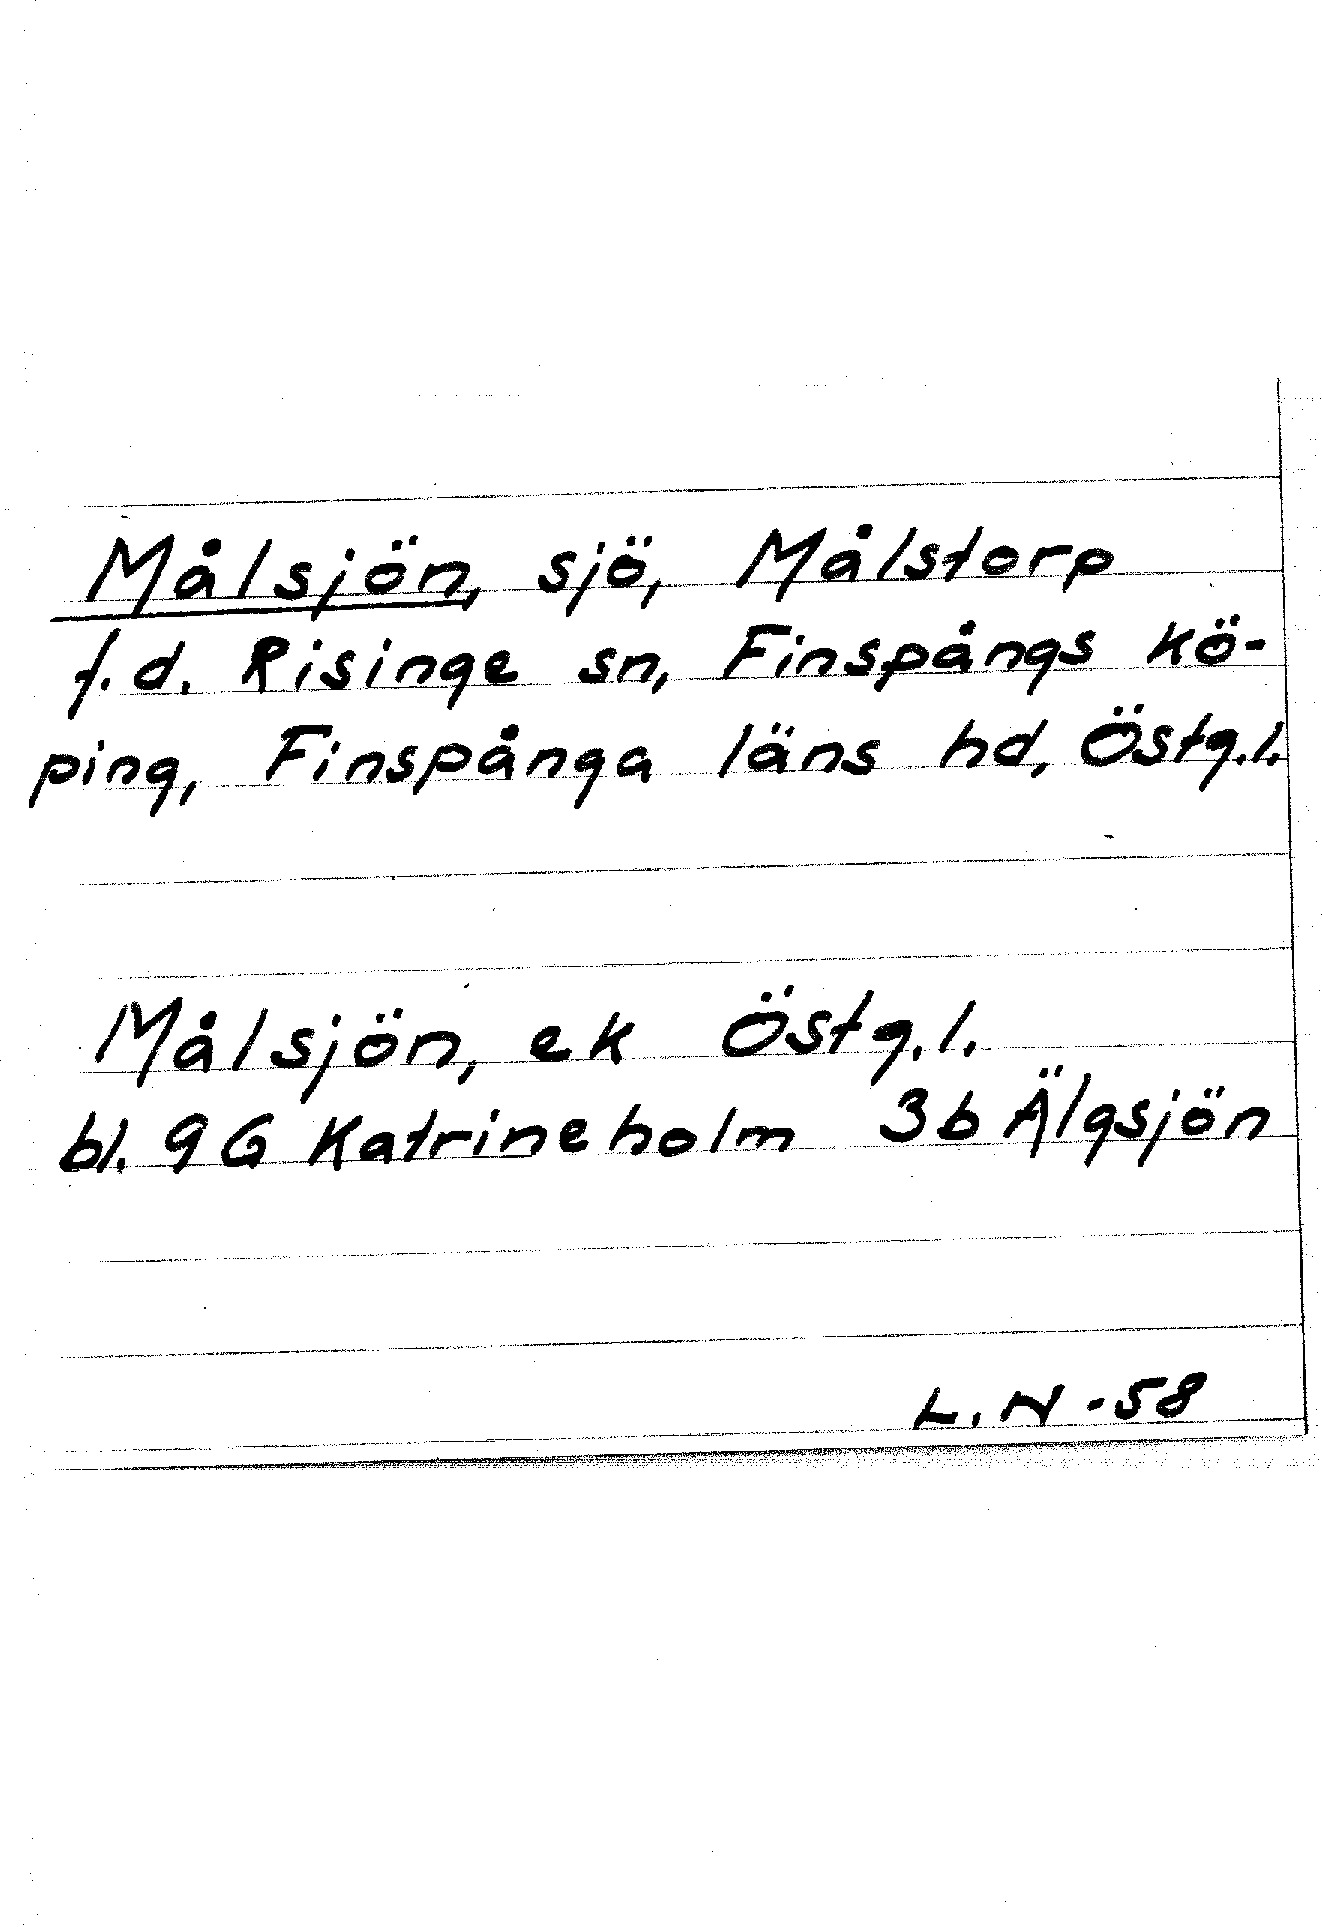 Målsjön, sjö, Målstorp
f.d. Risinge sn, Finspångs kö-
ping, Finspånga läns hd, Östg.l.
Målsjön, ek Östg.l.
bl. 9G Katrineholm 3b Älgsjön
L.N -58